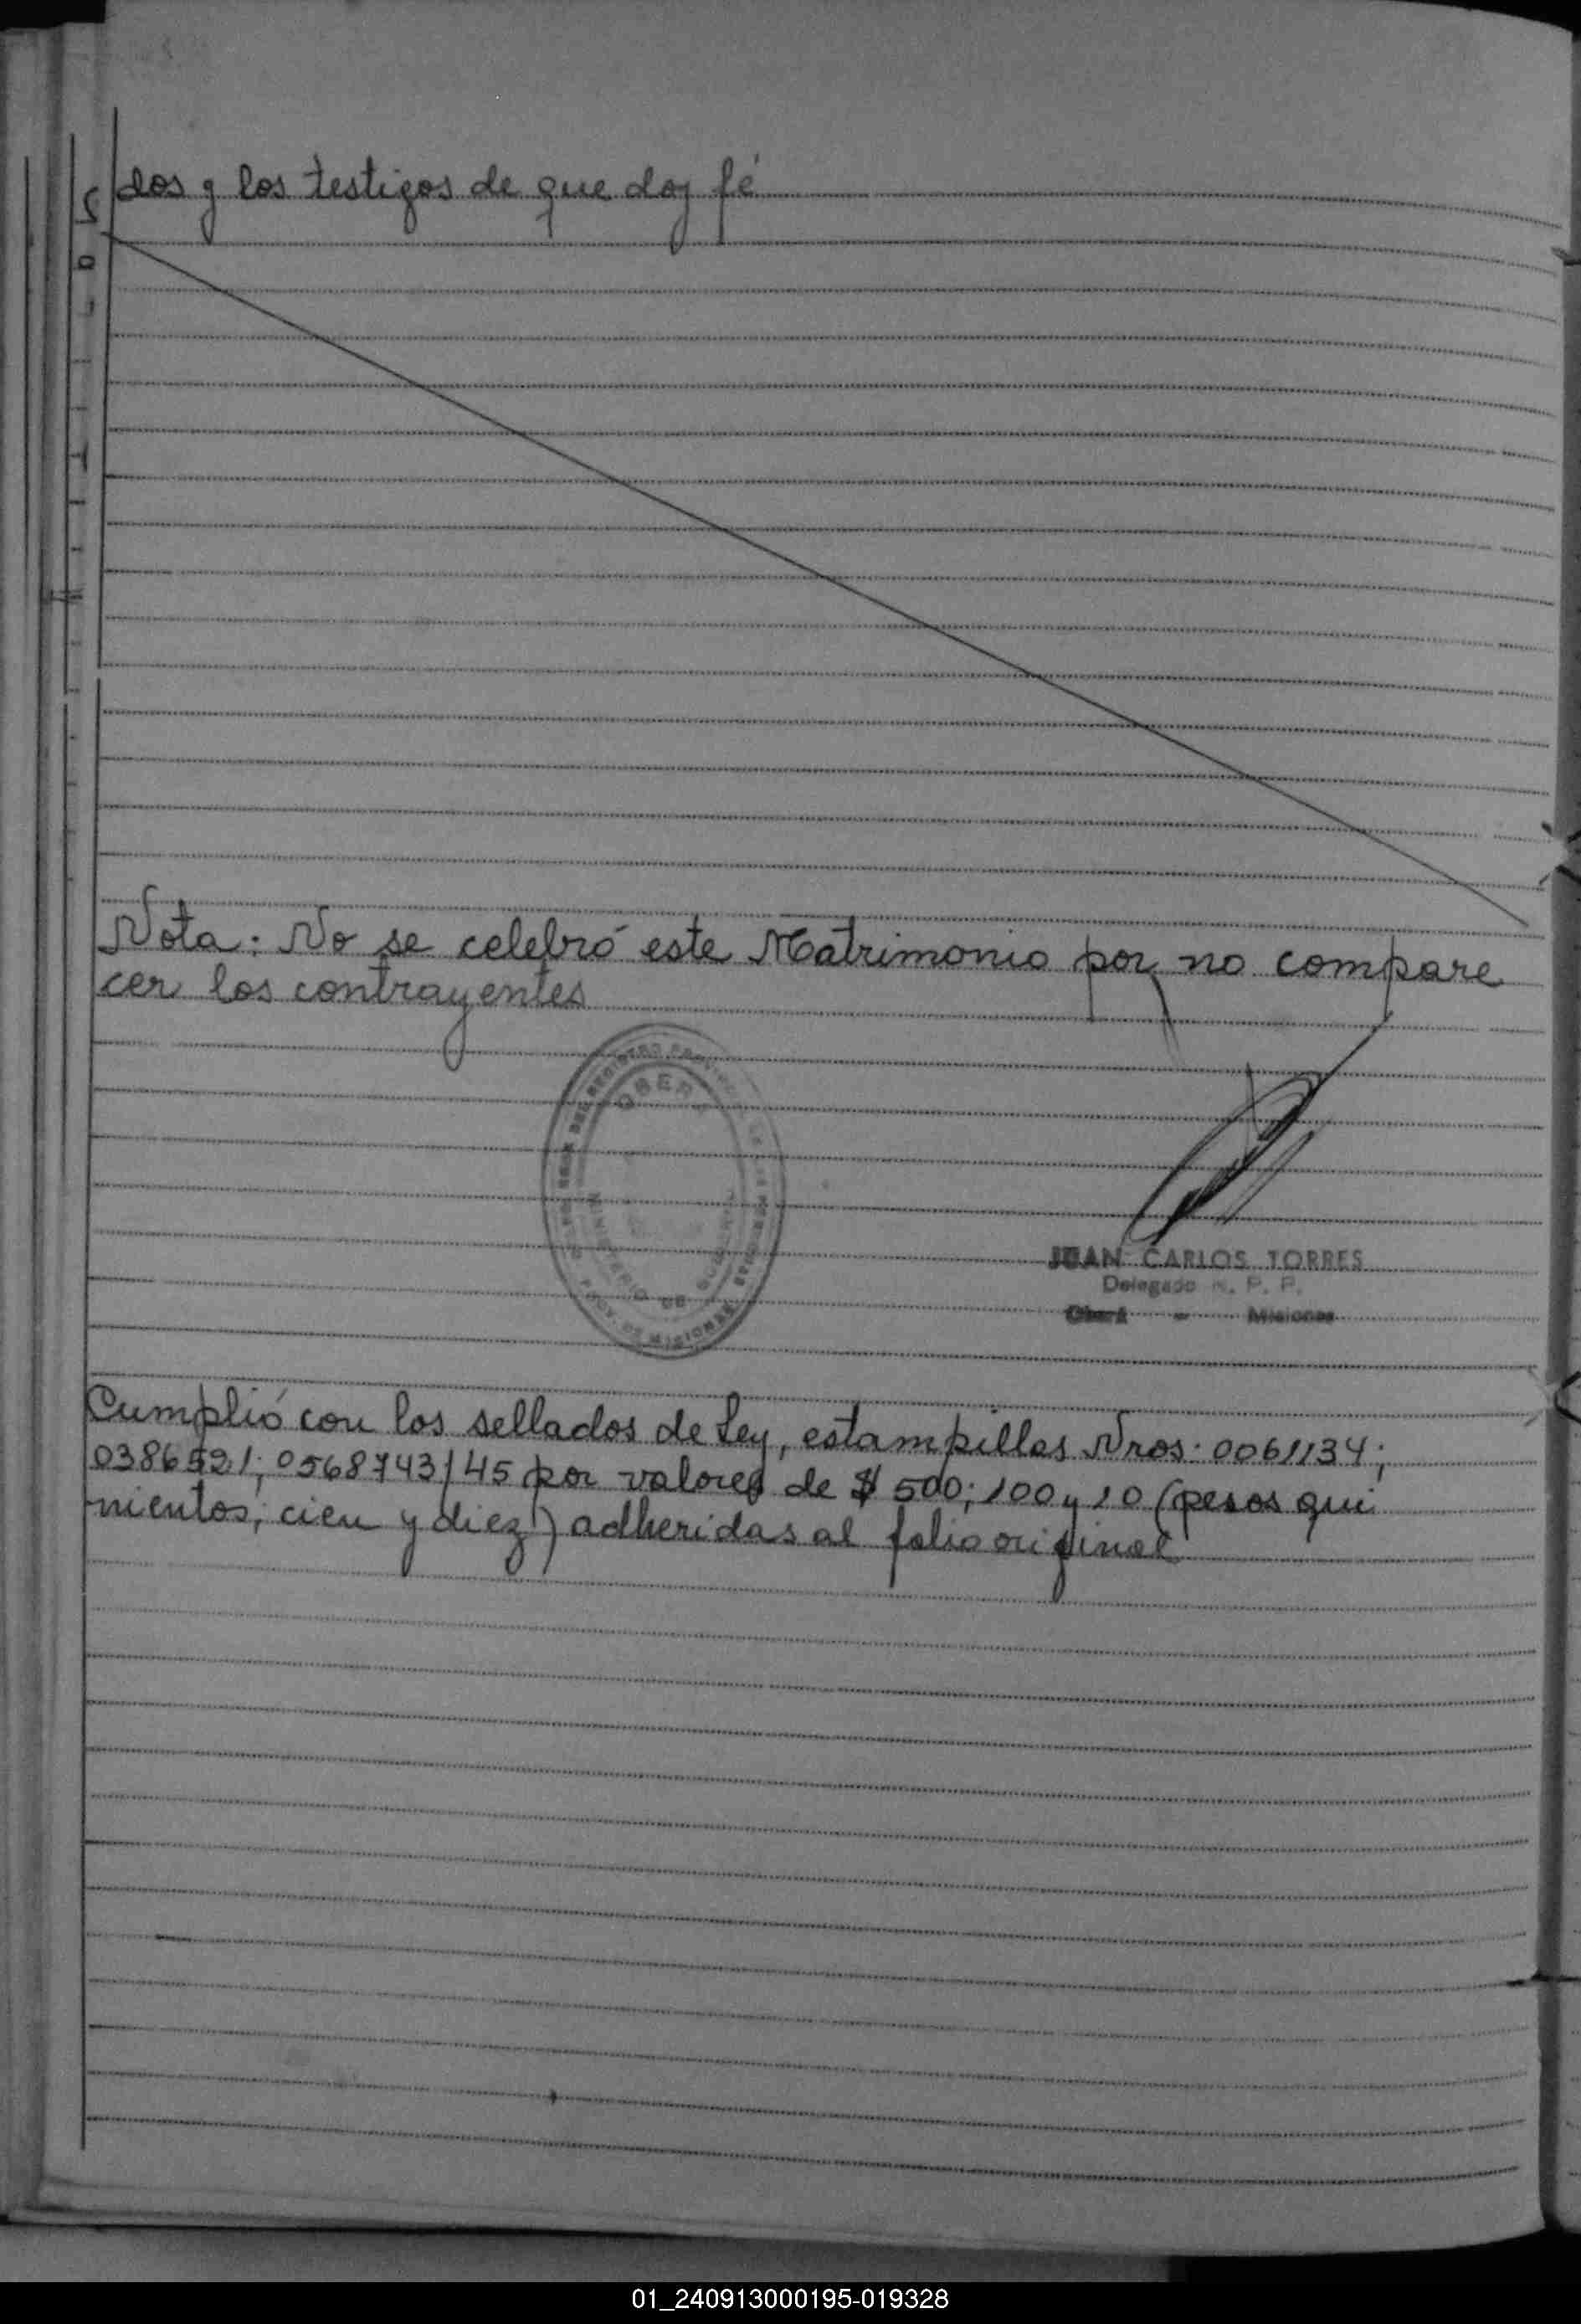 dos y los testigos de que doy fé
Nota: No se celebró este Matrimonio por no compare
cer los contrayentes
OBERA
MINISTERIO DE
PROV. DE MISIONES
JUAN CARLOS TORRES
Delegado R. P. P.
Oberá - Misiones
Cumplió con los sellados de Ley, estampillas Nros: 0061134;
0386521; 0568743/45 por valores de $ 500; 100 y 10 (pesos qui
nientos; cien y diez) adheridas al folio original
01_240913000195-019328